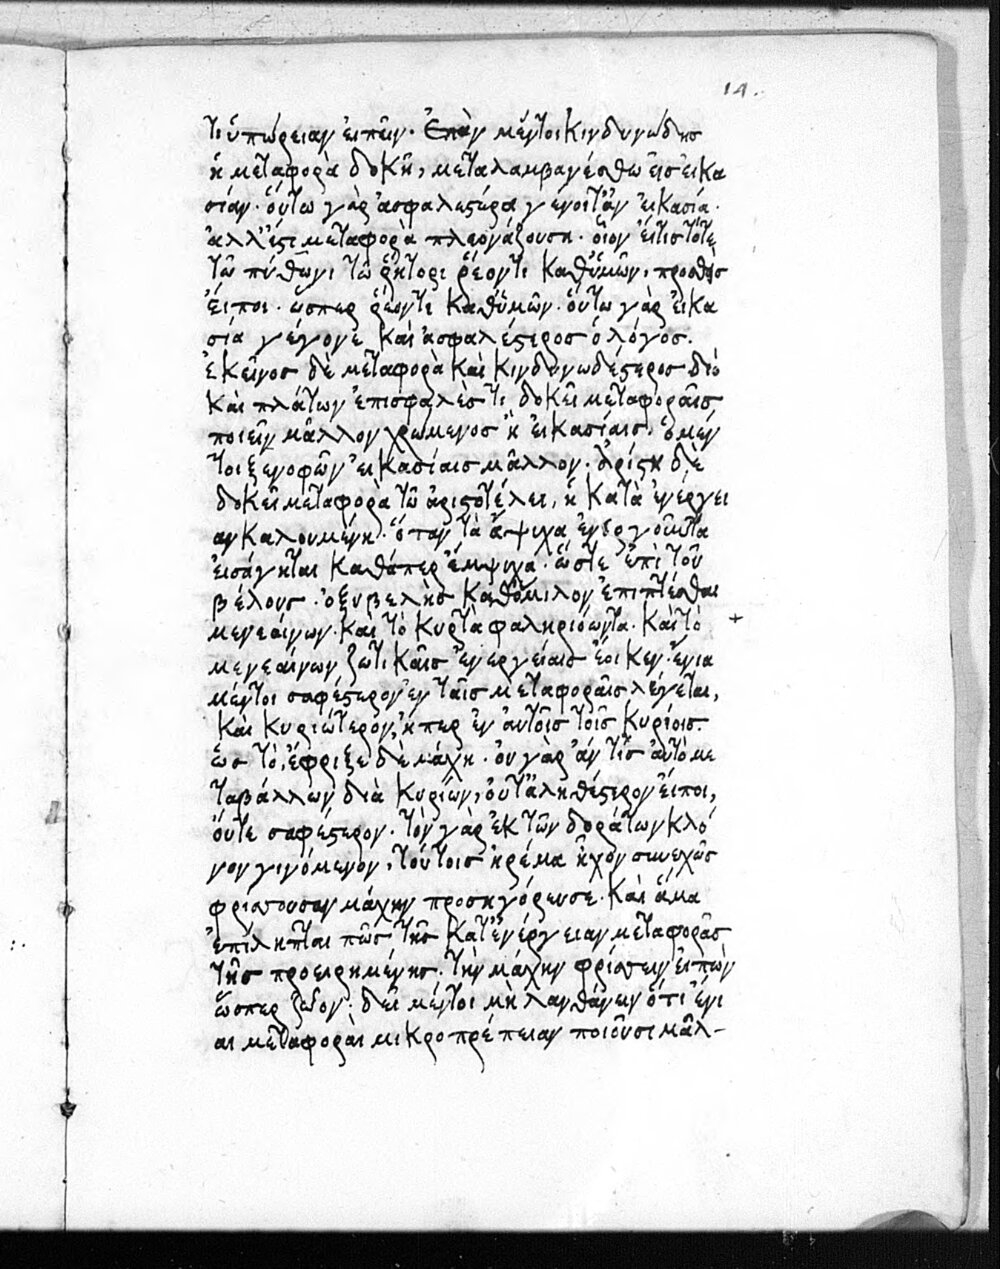 14.
τι ὑπώρειαν εἰπεῖν. Ἐπὰν μέντοι κινδυνώδης
ἡ μεταφορὰ δοκῆ, μεταλαμβανέσθω εἰς εἰκα
σίαν. οὕτω γὰρ ἀσφαλεστέρα γένοιτ' ἂν εἰκασία.
ἀλλ' ἔστι μεταφορὰ πλεονάζουσα. οἷον εἴ τις τότε
τῶ πύθωνι τῶ ῥήτορι ῥέοντι καθ' ὑμῶν, προσθεὶς
εἴποι. ὥσπερ ῥέοντι καθ' ὑμῶν. οὕτω γὰρ εἰκα
σία γέγονε καὶ ἀσφαλέστερος ὁ λόγος.
ἐκεῖνος δὲ μεταφορὰ καὶ κινδυνωδέστερος διὸ
καὶ πλάτων ἐπισφαλές τι δοκεῖ μεταφοραῖς
ποιεῖν μᾶλλον χρώμενος ἢ εἰκασίαις. ὁ μέν
τοι ξενοφῶν εἰκασίαις μᾶλλον. ἀρίστη δὲ
δοκεῖ μεταφορὰ τῶ ἀριστοτέλει, ἡ κατὰ ἐνέργει
αν καλουμένη. ὅταν τὰ ἄψυχα ἐνεργοῦντα
εἰσάγηται καθάπερ ἔμψυχα. ὥστε ἐπὶ τοῦ
βέλους. ὀξυβελὴς καθ' ὅμιλον ἐπιπτέσθαι
μενεαίνων. καὶ τὸ κυρτὰ φαληριόωντα. καὶ τὸ +
μενεαίνων ζωτικαῖς ἐνεργείαις ἔοικεν. ἔνια
μέντοι σαφέστερον ἐν ταῖς μεταφοραῖς λέγεται,
καὶ κυριώτερον, ἤπερ ἐν αὐτοῖς τοῖς κυρίοις.
ὡς τὸ, ἔφριξε δὲ μάχη. οὐ γὰρ ἄν τις αὐτὸ με
ταβάλλων διὰ κυρίων, οὔτ' ἀληθέστερον εἴποι,
οὔτε σαφέστερον. τὸν γὰρ ἐκ τῶν δοράτων κλό
νον γινόμενον, τούτοις ἠρέμα ἦχον συνεχῶς
φρίσσουσαν μάχην προσηγόρευσε. καὶ ἅμα
ἐπίληπται πως τῆς κατ' ἐνέργειαν μεταφορᾶς
τῆς προειρημένης. τὴν μάχην φρίσσειν εἰπὼν
ὥσπερ ζῶον. δεῖ μέντοι μὴ λανθάνειν ὅτι ἔνι
αι μεταφοραὶ μικροπρέπειαν ποιοῦσι μᾶλ-